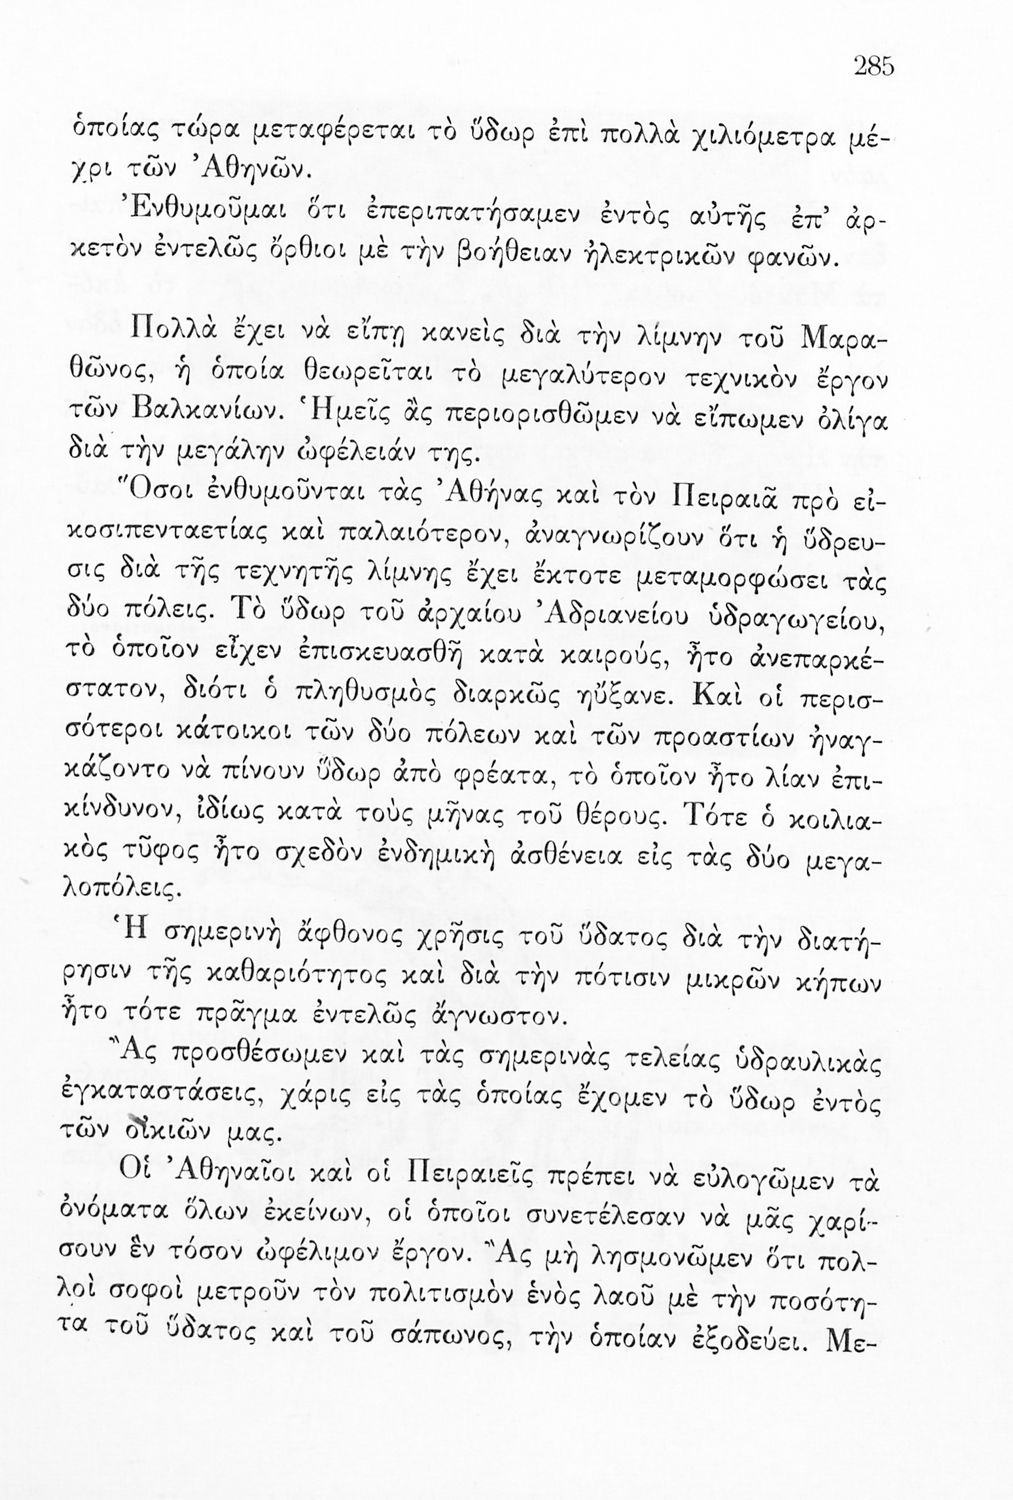 285
ὁποίας τώρα μεταφέρεται τὸ ὕδωρ ἐπὶ πολλὰ χιλιόμετρα μέ-
χρι τῶν Ἀθηνῶν.
Ἐνθυμοῦμαι ὅτι ἐπεριπατήσαμεν ἐντὸς αὐτῆς ἐπ’ ἀρ-
κετὸν ἐντελῶς ὄρθιοι μὲ τὴν βοήθειαν ἠλεκτρικῶν φανῶν.
Πολλὰ ἔχει νὰ εἴπῃ κανεὶς διὰ τὴν λίμνην τοῦ Μαρα-
θῶνος, ἡ ὁποία θεωρεῖται τὸ μεγαλύτερον τεχνικὸν ἔργον
τῶν Βαλκανίων. Ἡμεῖς ἂς περιορισθῶμεν νὰ εἴπωμεν ὀλίγα
διὰ τὴν μεγάλην ὠφέλειάν της.
Ὅσοι ἐνθυμοῦνται τὰς Ἀθήνας καὶ τὸν Πειραιᾶ πρὸ εἰ-
κοσιπενταετίας καὶ παλαιότερον, ἀναγνωρίζουν ὅτι ἡ ὕδρευ-
σις διὰ τῆς τεχνητῆς λίμνης ἔχει ἔκτοτε μεταμορφώσει τὰς
δύο πόλεις. Τὸ ὕδωρ τοῦ ἀρχαίου Ἀδριανείου ὑδραγωγείου,
τὸ ὁποῖον εἶχεν ἐπισκευασθῆ κατὰ καιρούς, ἦτο ἀνεπαρκέ-
στατον, διότι ὁ πληθυσμὸς διαρκῶς ηὔξανε. Καὶ οἱ περισ-
σότεροι κάτοικοι τῶν δύο πόλεων καὶ τῶν προαστίων ἠναγ-
κάζοντο νὰ πίνουν ὕδωρ ἀπὸ φρέατα, τὸ ὁποῖον ἦτο λίαν ἐπι-
κίνδυνον, ἰδίως κατὰ τοὺς μῆνας τοῦ θέρους. Τότε ὁ κοιλια-
κὸς τῦφος ἦτο σχεδὸν ἐνδημικὴ ἀσθένεια εἰς τὰς δύο μεγα-
λοπόλεις.
Ἡ σημερινὴ ἄφθονος χρῆσις τοῦ ὕδατος διὰ τὴν διατή-
ρησιν τῆς καθαριότητος καὶ διὰ τὴν πότισιν μικρῶν κήπων
ἦτο τότε πρᾶγμα ἐντελῶς ἄγνωστον.
Ἂς προσθέσωμεν καὶ τὰς σημερινὰς τελείας ὑδραυλικὰς
ἐγκαταστάσεις, χάρις εἰς τὰς ὁποίας ἔχομεν τὸ ὕδωρ ἐντὸς
τῶν οἰκιῶν μας.
Οἱ Ἀθηναῖοι καὶ οἱ Πειραιεῖς πρέπει νὰ εὐλογῶμεν τὰ
ὀνόματα ὅλων ἐκείνων, οἱ ὁποῖοι συνετέλεσαν νὰ μᾶς χαρί-
σουν ἓν τόσον ὠφέλιμον ἔργον. Ἂς μὴ λησμονῶμεν ὅτι πολ-
λοὶ σοφοὶ μετροῦν τὸν πολιτισμὸν ἑνὸς λαοῦ μὲ τὴν ποσότη-
τα τοῦ ὕδατος καὶ τοῦ σάπωνος, τὴν ὁποίαν ἐξοδεύει. Με-